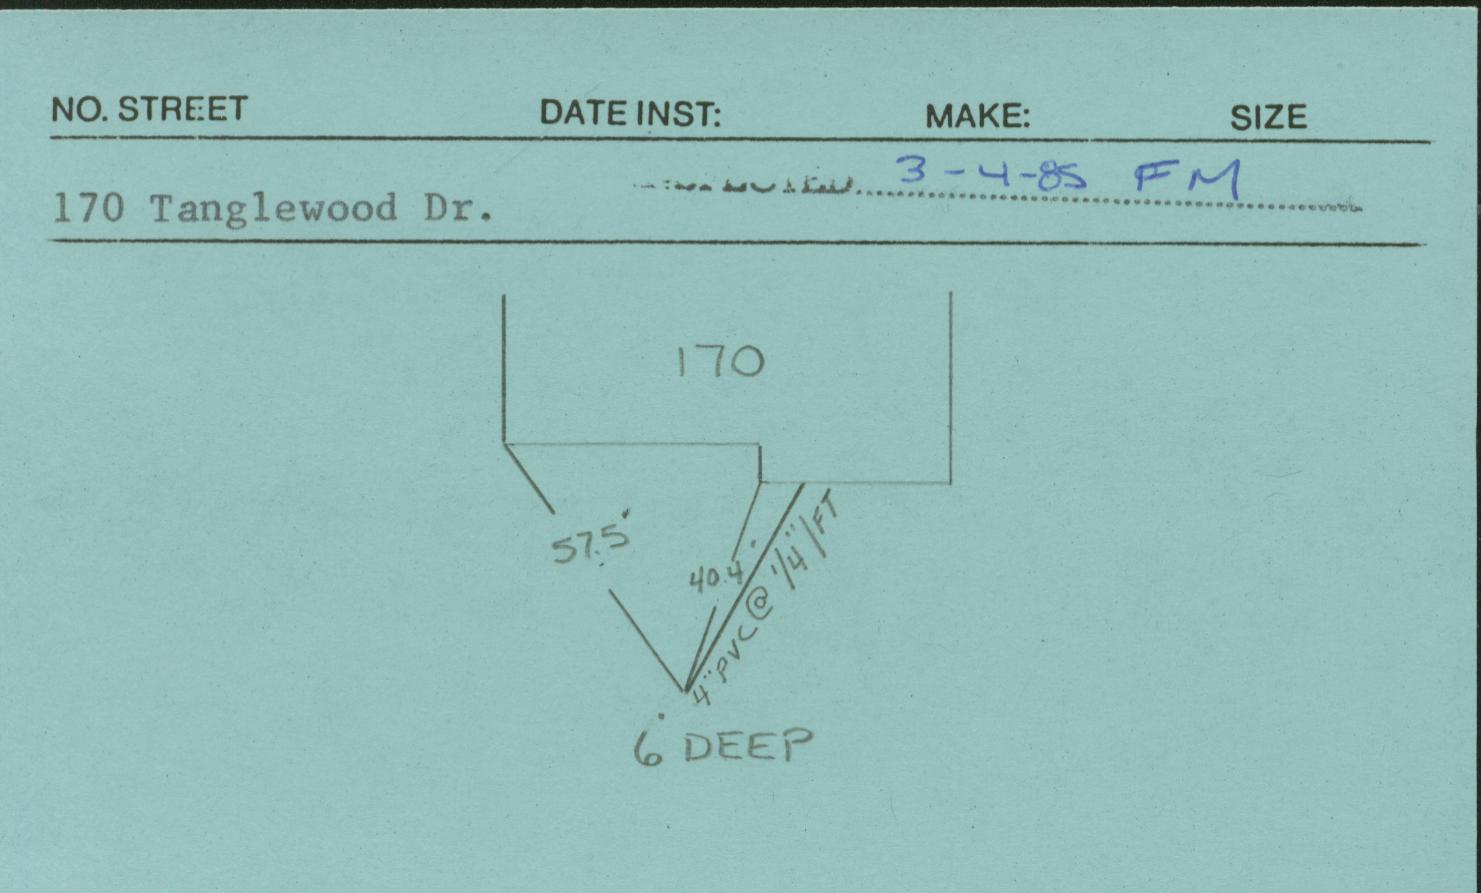 NO. STREET DATE INST: MAKE: SIZE
170 Tanglewood Dr. 3-4-85 FM
170
57.5'
40.4'
4" PVC @ 1/4"/FT
6' DEEP